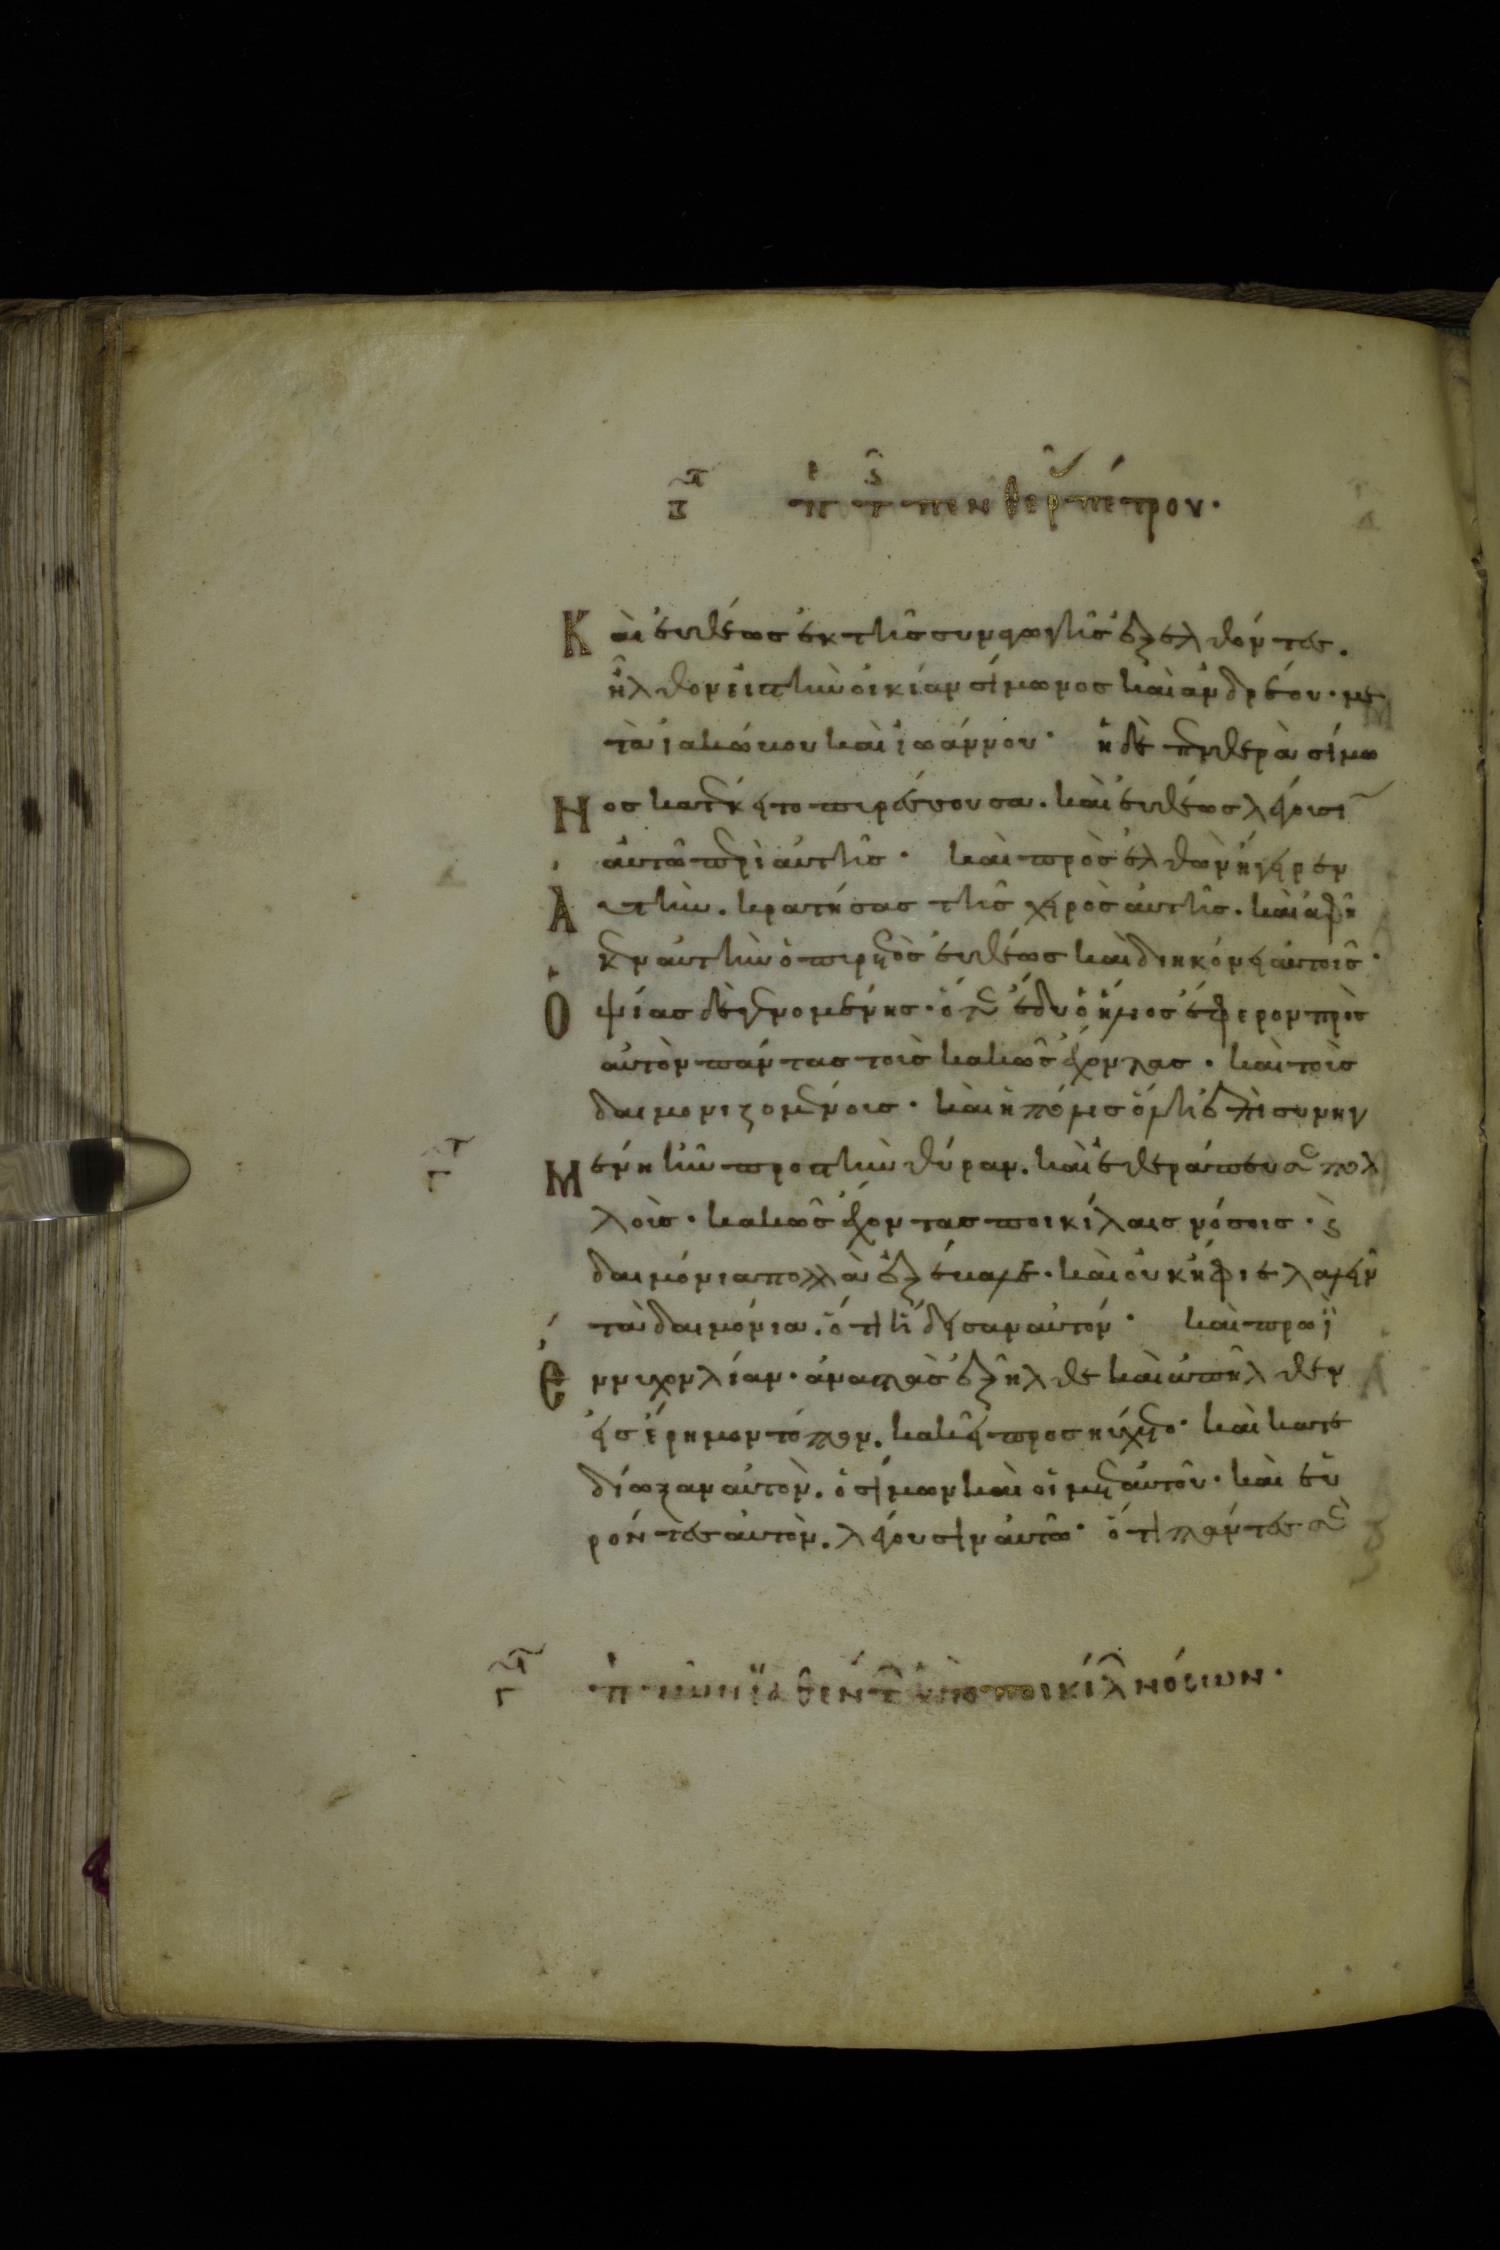 β π τ πενθερ πέτρου·
Καὶ εὐθέως ἐκ τῆς συναγωγῆς ἐξελθόντες.
ἦλθον εἰς τὴν οἰκίαν σίμωνος καὶ ἀνδρέου· με
τὰ ἰακώβου καὶ ἰωάννου· ἡ δὲ πενθερὰ σίμω
Νος κατέκειτο πυρέσσουσα. καὶ εὐθέως λέγουσι
αὐτῶ περὶ αὐτῆς· καὶ προσελθὼν ἤγειρεν
Αὐτὴν. κρατήσας τῆς χειρὸς αὐτῆς. καὶ ἀφῆ
κεν αὐτὴν ὁ πυρετὸς εὐθέως καὶ διηκόνει αὐτοῖς·
Ὀψίας δὲ γενομένης· ὅτε ἔδυ ὁ ἥλιος ἔφερον πρὸς
αὐτὸν πάντας τοὺς κακῶς ἔχοντας· καὶ τοὺς
δαιμονιζομένους· καὶ ἡ πόλις ὅλη ἐπισυνηγ
Μένη ἦν προς τὴν θύραν. καὶ ἐθεράπευσε πολ
λοὺς· κακῶς ἔχοντας ποικίλαις νόσοις· ϗ
δαιμόνια πολλὰ ἐξέβαλε· καὶ οὐκ ἤφιε λαλεῖν
τὰ δαιμόνια. ὅτι ἤδεισαν αὐτόν· καὶ πρωῒ
Ἐννυχον λίαν· ἀναστὰς ἐξῆλθε καὶ ἀπῆλθεν
εἰς ἔρημον τόπον. κακεῖ προσηύχετο· καὶ κατε
δίωξαν αὐτὸν. ὁ σίμων καὶ οἱ μετ αὐτοῦ· καὶ εὑ
ρόντες αὐτὸν. λέγουσιν αὐτῶ· ὅτι πάντες σε
γ π ἰαθέντ ἀπὸ ποικίλ νόσων·